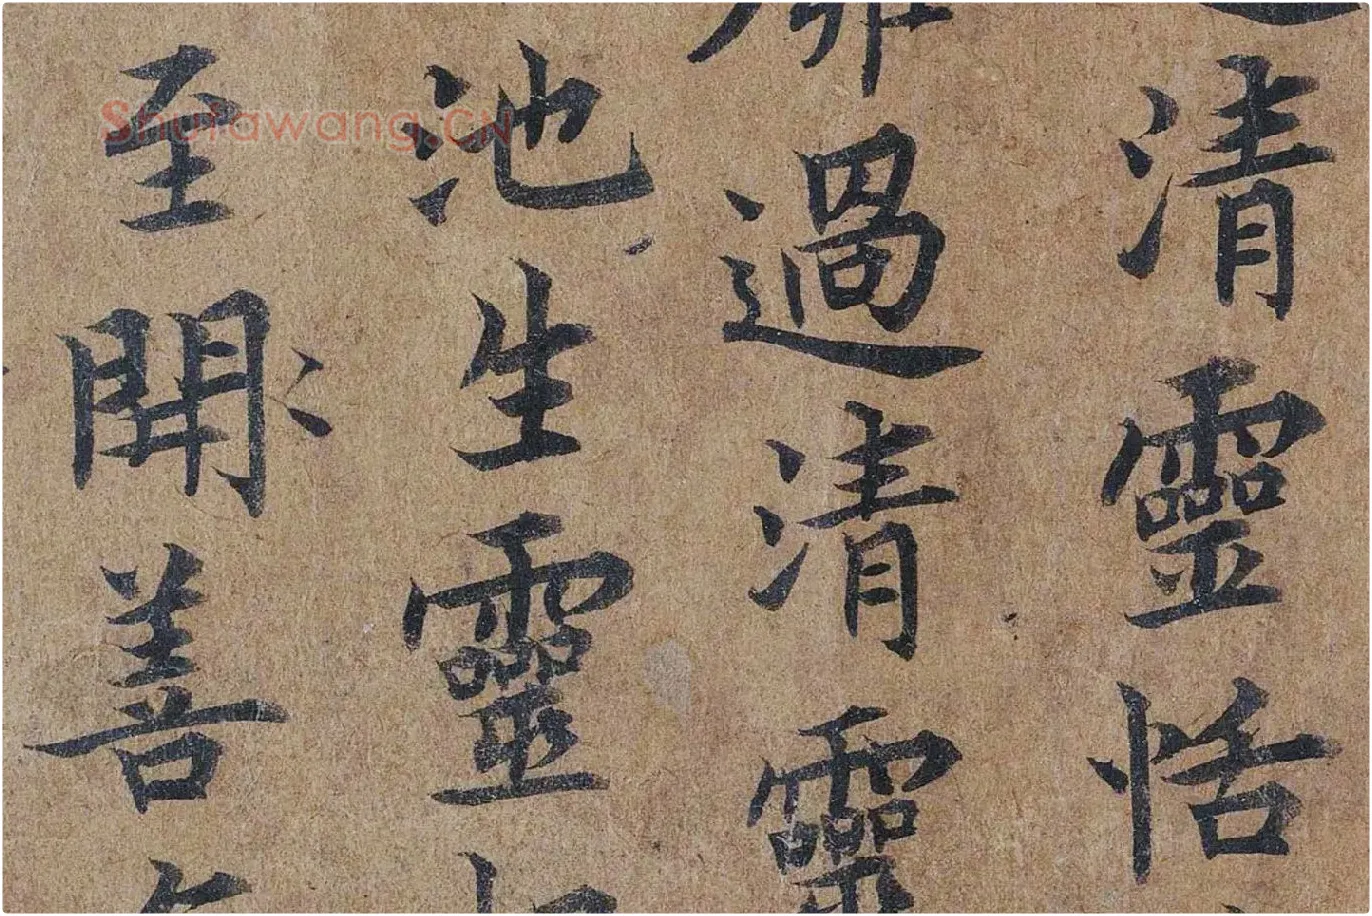 清靈恬
過清靈
池生靈
至開善
Shufawang.CN